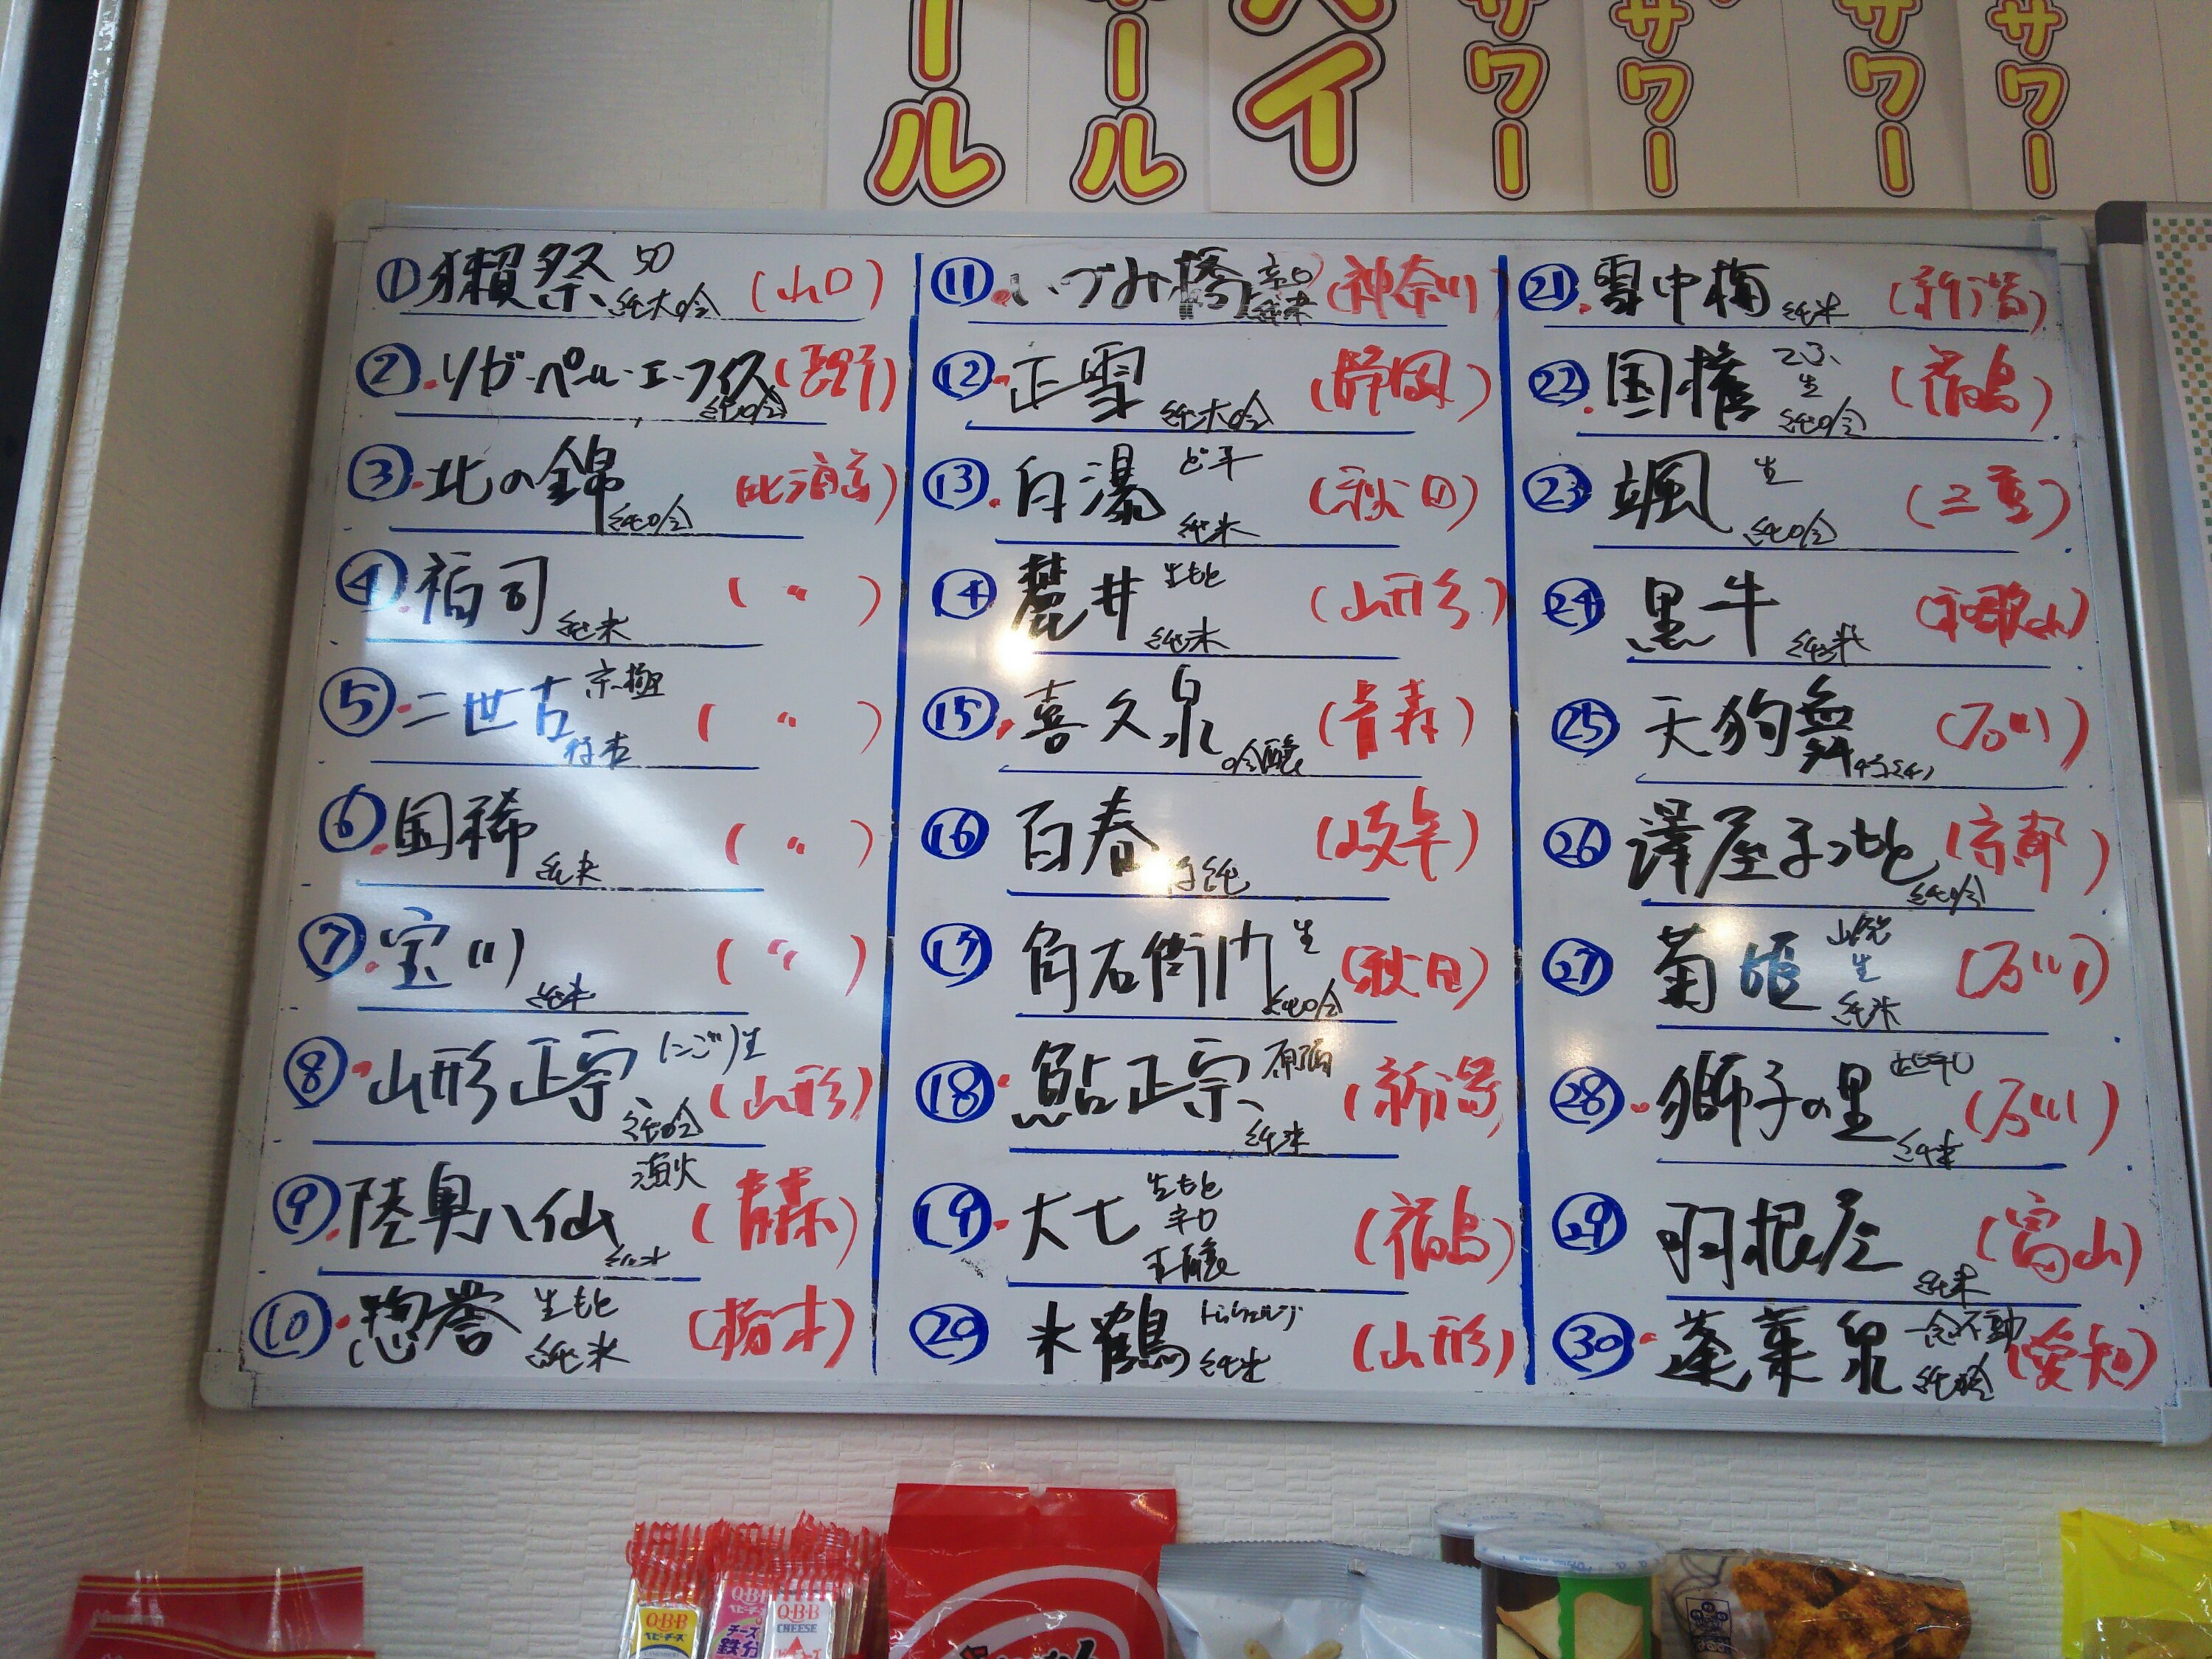 ール
ール
ハイ
サワー
サワー
サワー
サワー
① 獺祭 50 純大吟 (山口)
② リガ・ペール・エ・フィス 純吟 (長野)
③ 北の錦 純吟 (北海道)
④ 福司 純米 (〃)
⑤ 二世古 京極 特本 (〃)
⑥ 国稀 純米 (〃)
⑦ 宝川 純米 (〃)
⑧ 山形正宗 にごり生 純吟 (山形)
⑨ 陸奥八仙 漁火 純米 (青森)
⑩ 惣誉 生もと 純米 (栃木)
⑪ いづみ橋 辛口 純米 (神奈川)
⑫ 正雪 純大吟 (静岡)
⑬ 白瀑 ど辛 純米 (秋田)
⑭ 麓井 生もと 純米 (山形)
⑮ 喜久泉 吟醸 (青森)
⑯ 百春 特純 (岐阜)
⑰ 角右衛門 生 純吟 (秋田)
⑱ 鮎正宗 純米 (新潟)
⑲ 大七 生もと (福島)
⑳ 米鶴 純米 (山形)
㉑ 雪中梅 純米 (新潟)
㉒ 国権 てふ 生 純吟 (福島)
㉓ 颯 生 純吟 (三重)
㉔ 黒牛 純米 (和歌山)
㉕ 天狗舞 (石川)
㉖ 澤屋まつもと 純吟 (京都)
㉗ 菊姫 山廃 生 純米 (石川)
㉘ 獅子の里 超辛口 純米 (石川)
㉙ 羽根屋 純米 (富山)
㉚ 蓬莱泉 一念不動 純吟 (愛知)
Q・B・B
ベビーチーズ
Q・B・B
ベビーチーズ
チーズ
鉄分
Q・B・B
CHEESE